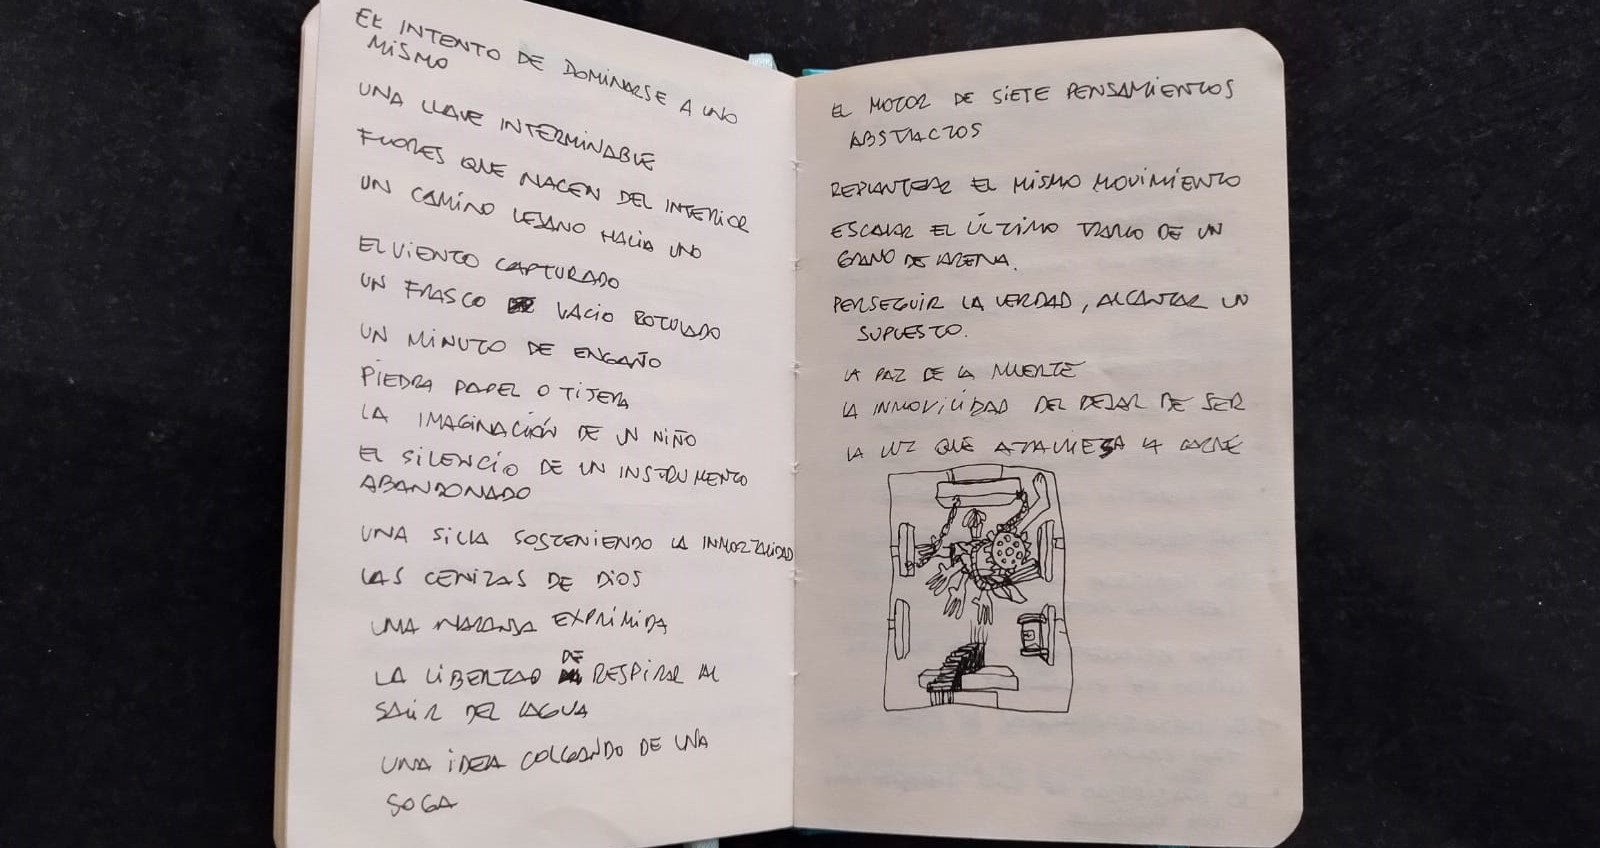 EL INTENTO DE DOMINARSE A UNO
MISMO
UNA LLAVE INTERMINABLE
FLORES QUE NACEN DEL INTERIOR
UN CAMINO LEJANO HACIA UNO
EL VIENTO CAPTURADO
UN FRASCO VACIO ROTULADO
UN MINUTO DE ENGAÑO
PIEDRA PAPEL O TIJERA
LA IMAGINACIÓN DE UN NIÑO
EL SILENCIO DE UN INSTRUMENTO
ABANDONADO
UNA SILLA SOSTENIENDO LA INMORTALIDAD
LAS CENIZAS DE DIOS
UNA NARANJA EXPRIMIDA
LA LIBERTAD DE RESPIRAR AL
SALIR DEL AGUA
UNA IDEA COLGANDO DE UNA
SOGA
EL MOTOR DE SIETE PENSAMIENTOS
ABSTRACTOS
REPLANTEAR EL MISMO MOVIMIENTO
ESCALAR EL ÚLTIMO TRAMO DE UN
GRANO DE ARENA.
PERSEGUIR LA VERDAD, ALCANZAR UN
SUPUESTO.
LA PAZ DE LA MUERTE
LA INMOVILIDAD DEL DEJAR DE SER
LA LUZ QUE ATRAVIESA LA CARNE